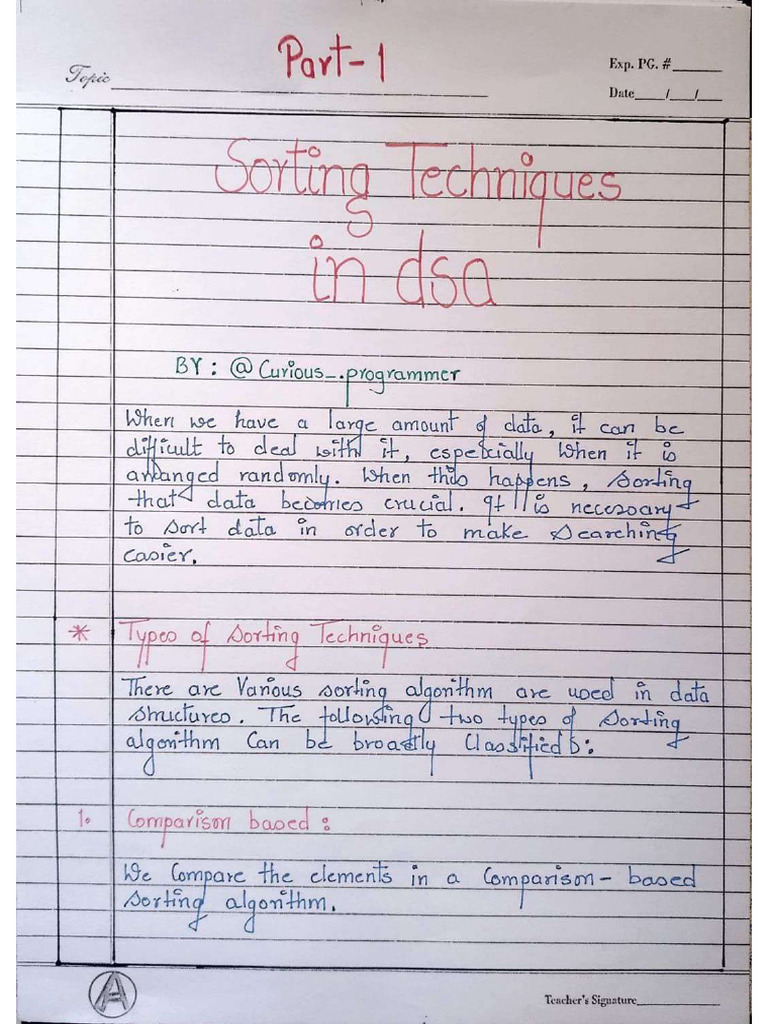 Part-1
Topic
Exp. PG. #
Date / /
Sorting Techniques
in dsa
BY : @Curious_.programmer
When we have a large amount of data, it can be
difficult to deal with it, especially when it is
arranged randomly. When this happens, sorting
that data becomes crucial. It is necessary
to sort data in order to make searching
easier.
* Types of sorting Techniques
There are Various sorting algorithm are used in data
structures. The following two types of sorting
algorithm can be broadly classified :
1. Comparison based :
We compare the elements in a comparison-based
sorting algorithm.
A
Teacher's Signature